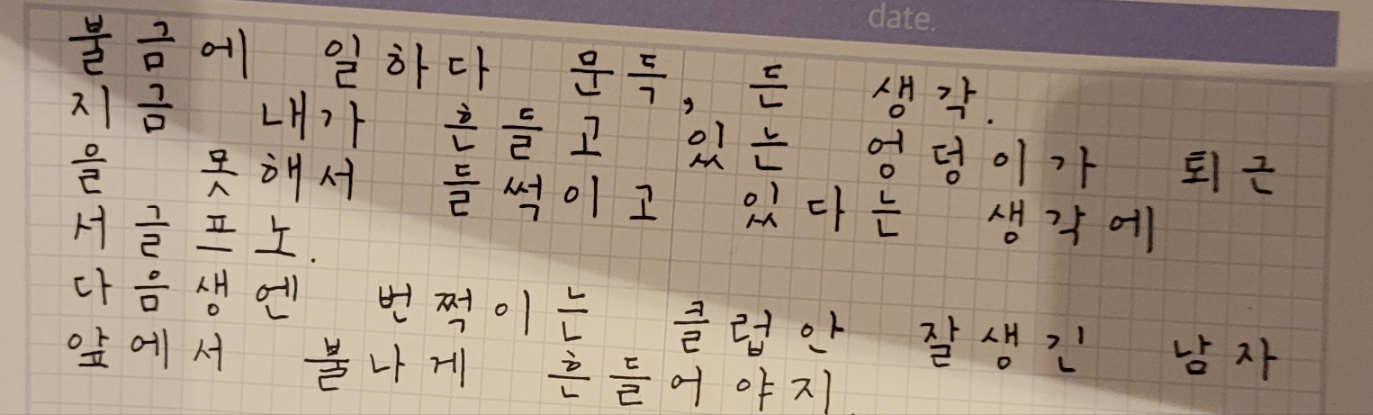 date.
불금에 일하다 문득, 든 생각.
지금 내가 흔들고 있는 엉덩이가 퇴근
을 못해서 들썩이고 있다는 생각에
서글프노.
다음생엔 번쩍이는 클럽안 잘생긴 남자
앞에서 불나게 흔들어야지.